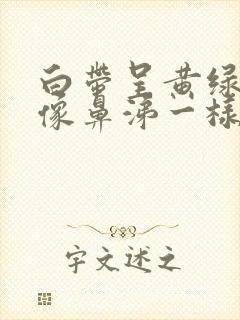 白带呈黄绿
像鼻涕一样
字文述之